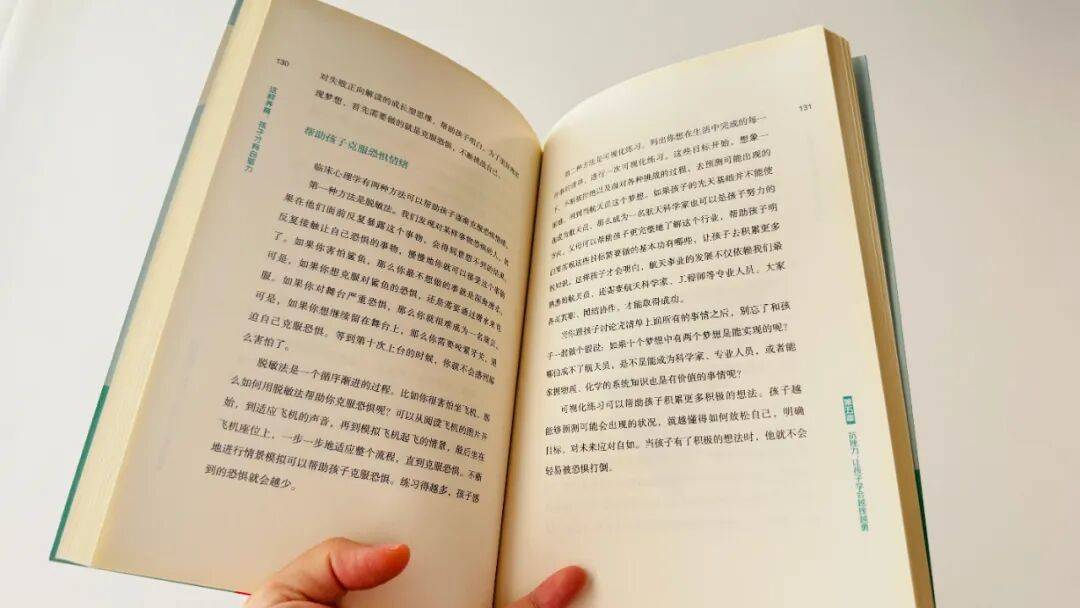 130
这样养育，孩子才有自驱力
对失败正向解读的成长型思维，帮助孩子明白，为了更好地实
现梦想，首先需要做的就是克服恐惧，不断挑战自己。
帮助孩子克服恐惧情绪
临床心理学有两种方法可以帮助孩子逐渐克服恐惧情绪。
第一种方法是脱敏法。我们发现对某样事物恐惧的人，如
果在他们面前反复暴露这个事物，会得到意想不到的结果。
反复接触让自己恐惧的事物，慢慢地你就可以接受这个事物
了。如果你害怕鲨鱼，那么你最不想做的事就是深海潜水。
可是，如果你想克服对鲨鱼的恐惧，还是需要通过潜水来克
服。如果你对舞台严重恐惧，那么你就很难成为一名演员。
可是，如果你想继续留在舞台上，那么你需要咬紧牙关，强
迫自己克服恐惧。等到第十次上台的时候，你就不会洛州那
么害怕了。
脱敏法是一个循序渐进的过程。比如你很害怕坐飞机，那
么如何用脱敏法帮助你克服恐惧呢？可以从阅读飞机的图片开
始，到适应飞机的声音，再到模拟飞机起飞的情景，最后坐在
飞机座位上，一步一步地适应整个流程，直到克服恐惧。不断
地进行情景模拟可以帮助孩子克服恐惧。练习得越多，孩子感
到的恐惧就会越少。
131
第二种方法是可视化练习。列出你想在生活中完成的每一
件事的清单，进行一次可视化练习。这些目标开始，想象一
下，不断被拒绝以及面对各种挑战的过程，去预测可能出现的
困惑。回到当航天员这个梦想。如果孩子的先天基础并不能使
他成为航天员，那么成为一名航天科学家也可以是孩子努力的
方向。父母可以帮助孩子更完整地了解这个行业，帮助孩子明
白要实现这些目标需要做的基本功有哪些，让孩子去积累更多
的知识。这样孩子才会明白，航天事业的发展不仅依赖我们最
熟悉的航天员，还需要航天科学家、工程师等专业人员，大家
各司其职、团结协作，才能取得成功。
当你跟孩子讨论完清单上面所有的事情之后，别忘了和孩
子一起做个假设：如果十个梦想中有两个梦想是能实现的呢？
哪怕成不了航天员，是不是能成为科学家、专业人员，或者能
掌握物理、化学的系统知识也是有价值的事情呢？
可视化练习可以帮助孩子积累更多积极的想法。孩子越
能够预测可能会出现的状况，就越懂得如何放松自己，明确
目标，对未来应对自如。当孩子有了积极的想法时，他就不会
轻易被恐惧打倒。
第五章
抗挫力：让孩子学会越挫越勇